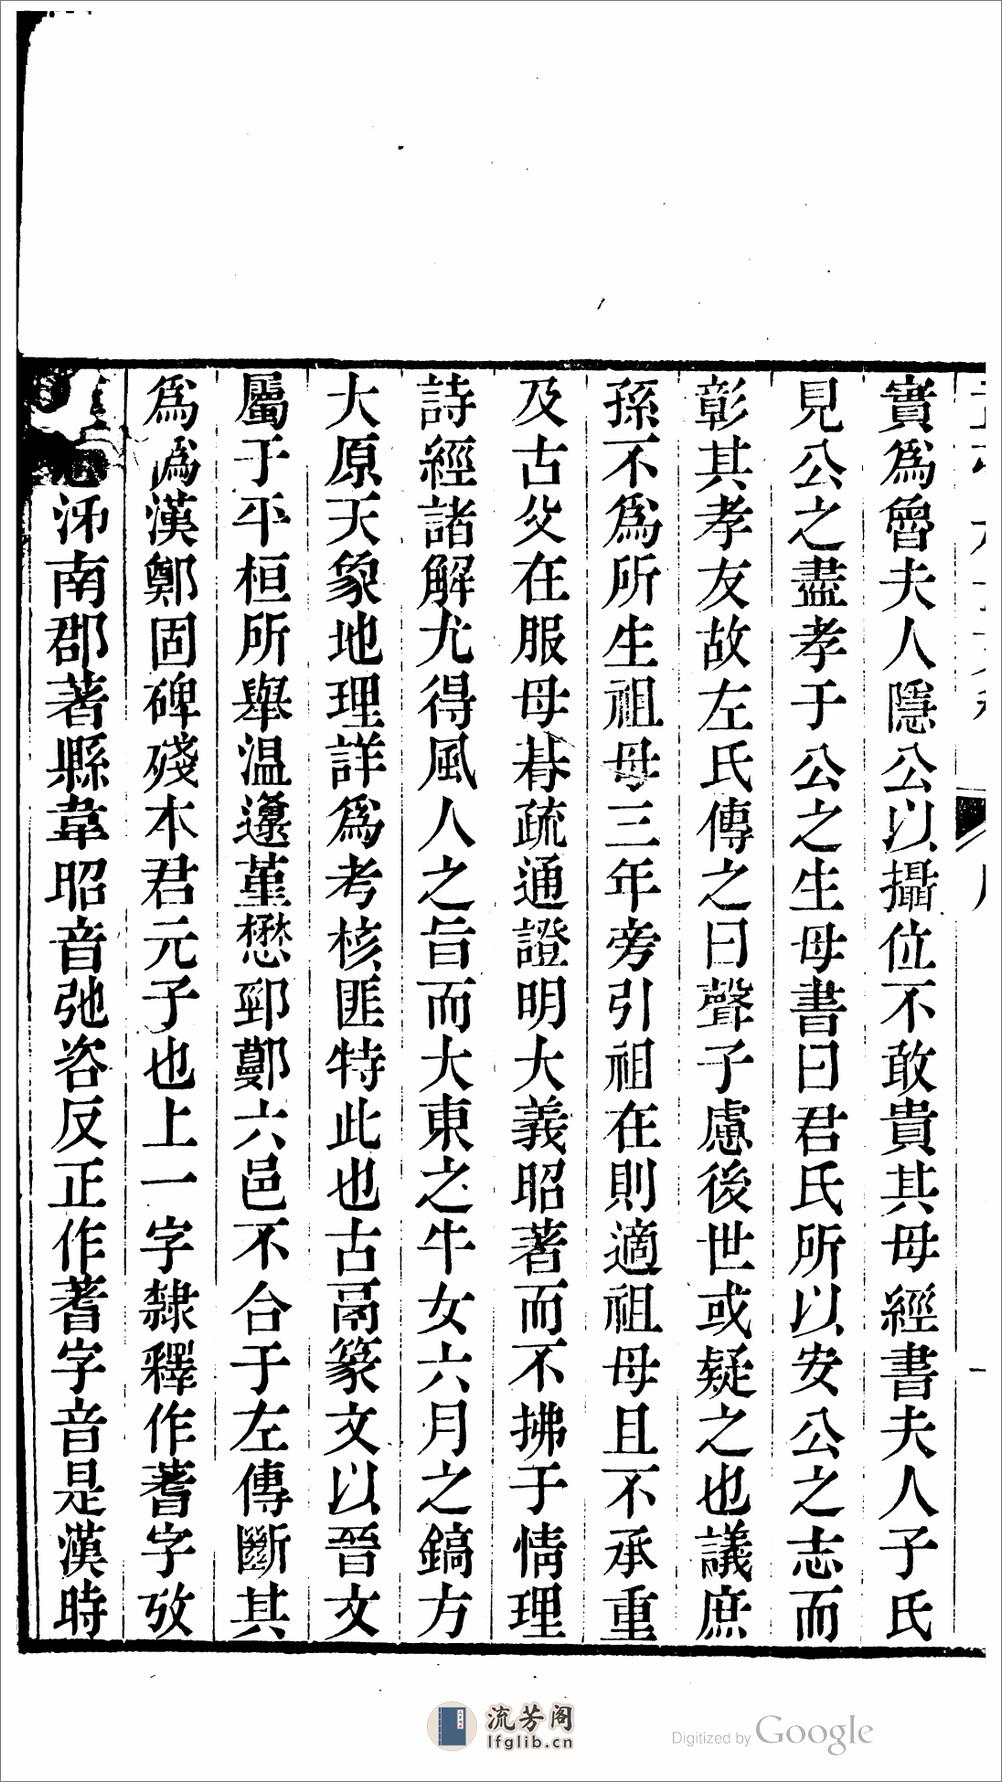 實爲魯夫人隱公以攝位不敢貴其母經書夫人子氏
見公之盡孝于公之生母書曰君氏所以安公之志而
彰其孝友故左氏傳之曰聲子慮後世或疑之也議庶
孫不爲所生祖母三年旁引祖在則適祖母且不承重
及古父在服母朞疏通證明大義昭著而不拂于情理
詩經諸解尤得風人之旨而大東之牛女六月之鎬方
大原天象地理詳爲考核匪特此也古鬲篆文以晉文
屬于平桓所舉溫邍堇懋郢鄭六邑不合于左傳斷其
爲譌漢鄭固碑殘本君元子也上一字隸釋作蓍字攷
泲南郡著縣韋昭音弛咨反正作蓍字音是漢時
流芳阁
lfglib.cn
Digitized by Google